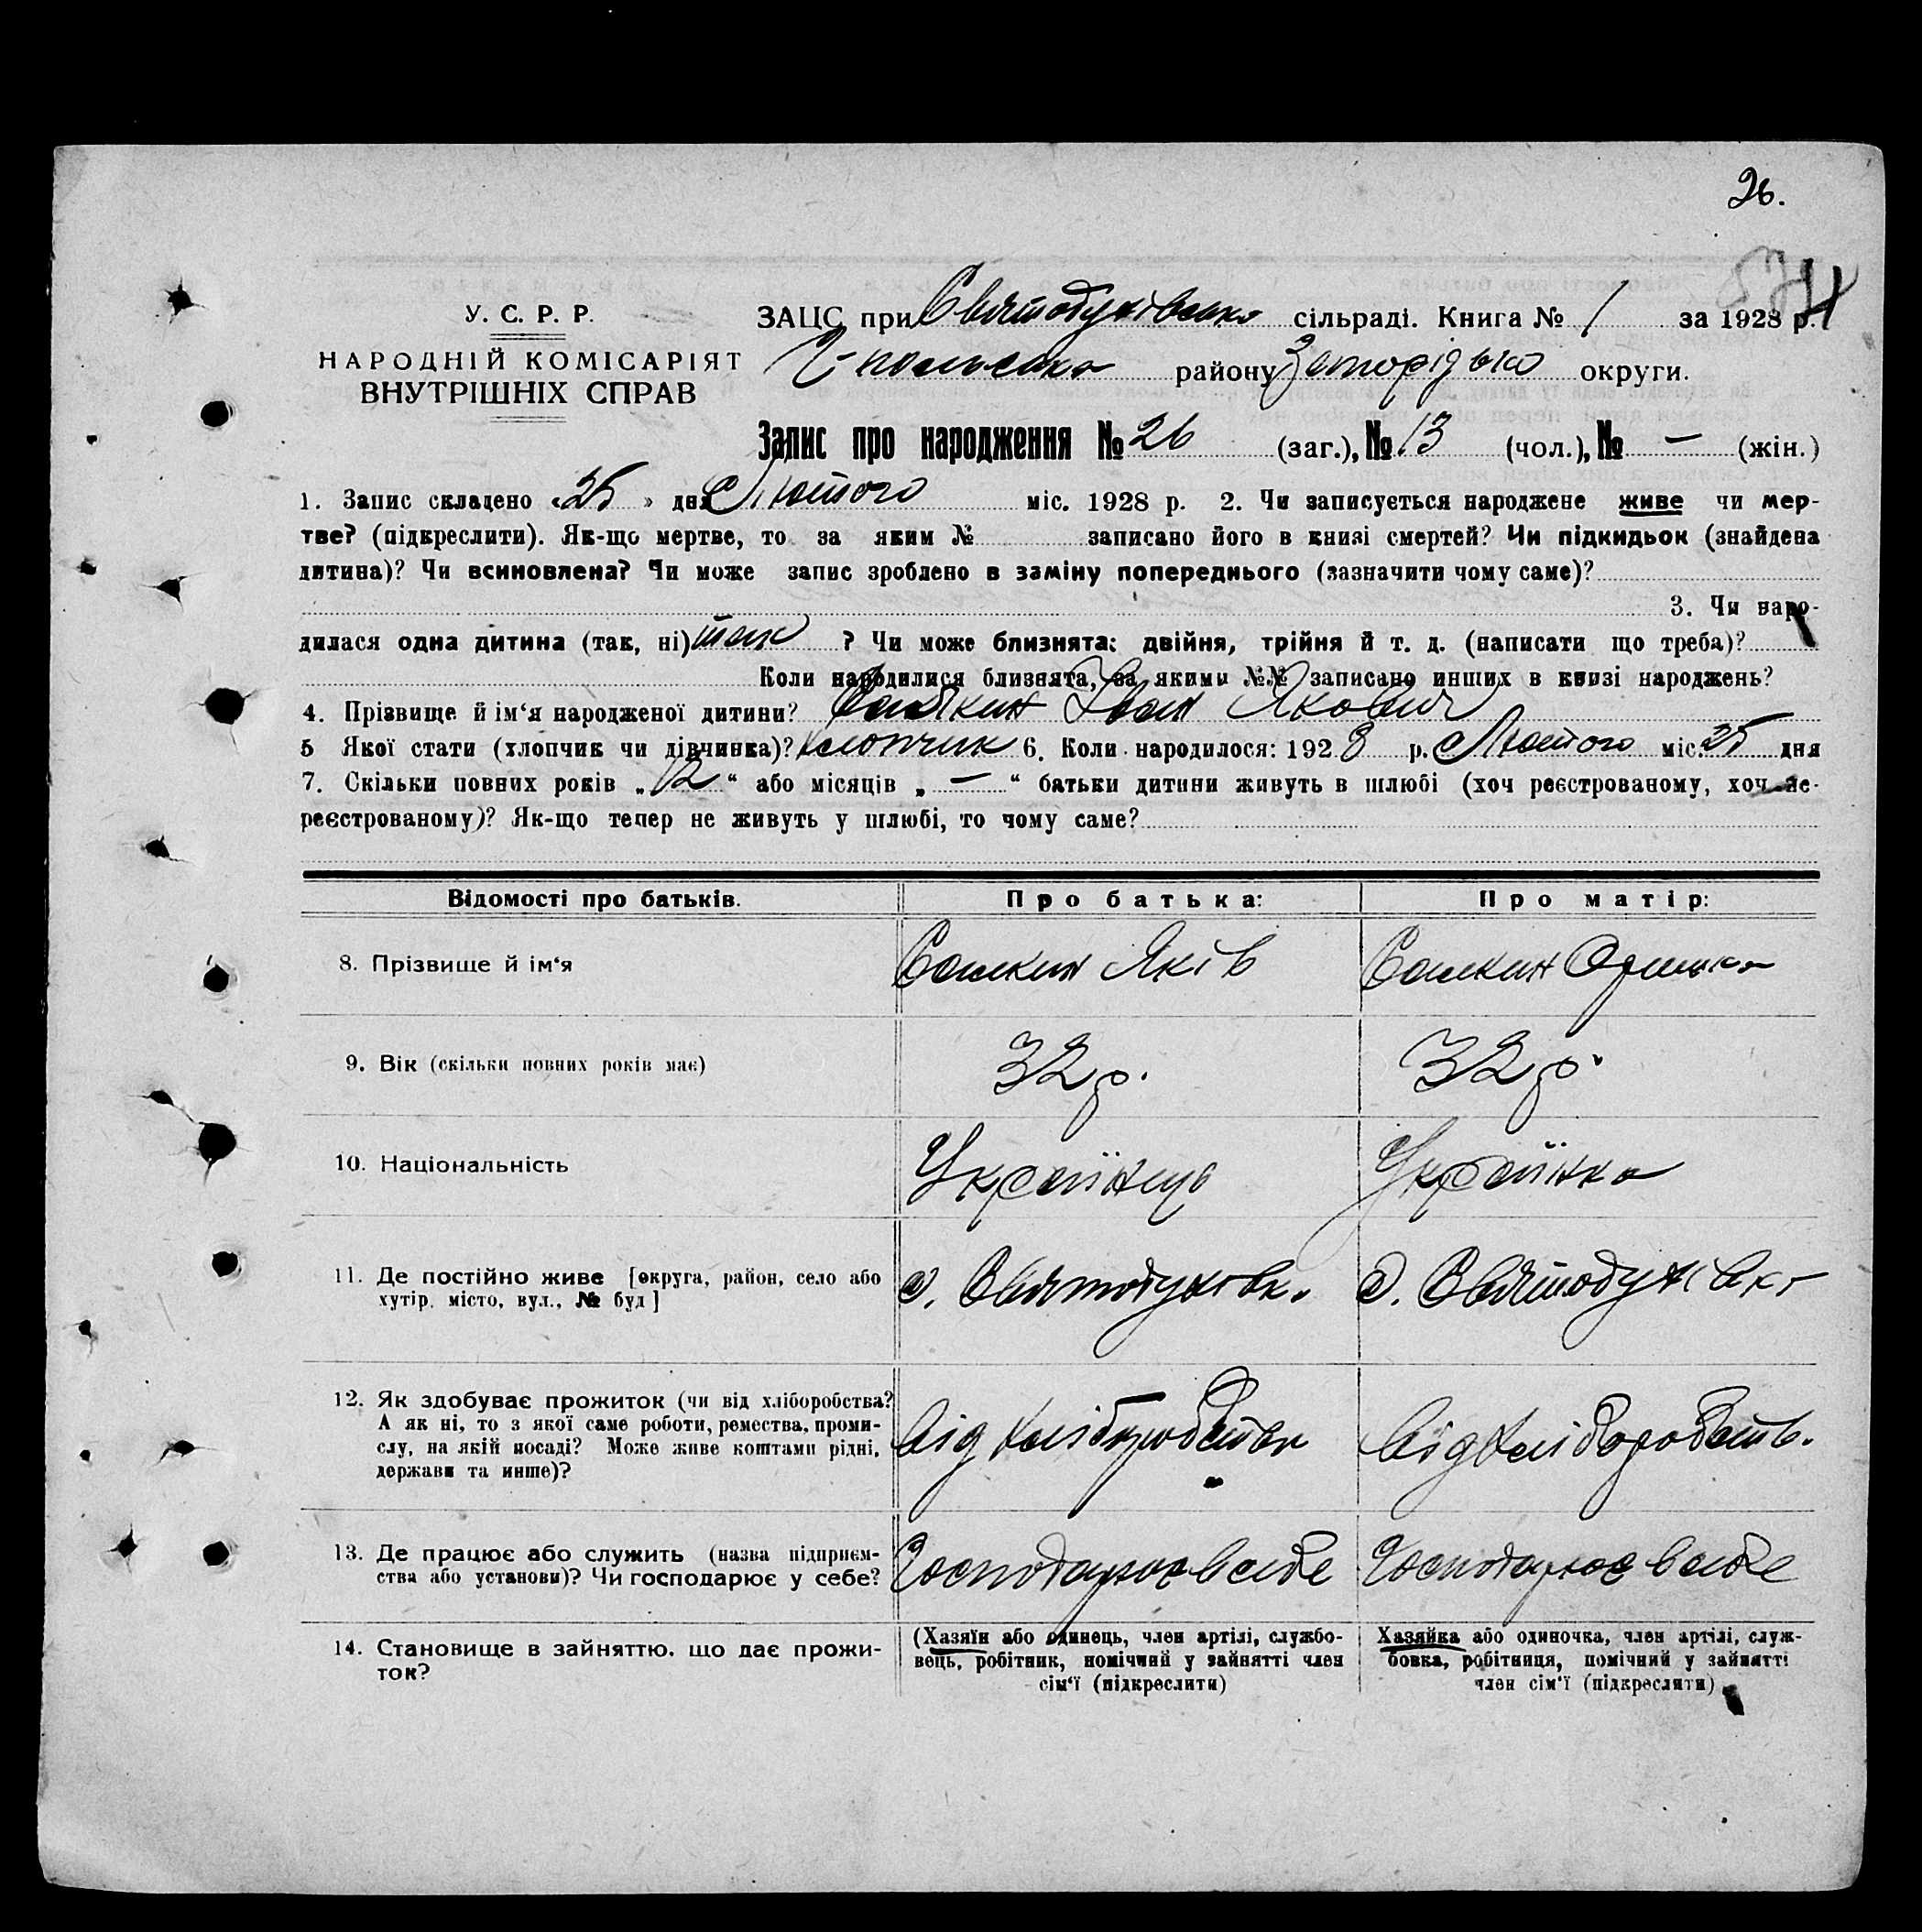 26.
У. С. Р. Р.
НАРОДНІЙ КОМІСАРІЯТ
ВНУТРІШНІХ СПРАВ
ЗАЦС при Святодухівська сільраді. Книга № 1 за 1928 р.
району Запорізько округи.
Запис про народження № 26 (заг.), № 13 (чол.), № — (жін.)
1. Запис складено «25» дня Лютого міс. 1928 р. 2. Чи записується народжене живе чи мер-
тве? (підкреслити). Як-що мертве, то за яким № записано його в книзі смертей? Чи підкидьок (знайдена
дитина)? Чи всиновлена? Чи може запис зроблено в заміну попереднього (зазначити чому саме)?
3. Чи наро-
дилася одна дитина (так, ні) так ? Чи може близнята: двійня, трійня й т. д. (написати що треба)?
Коли народилися близнята, за якими №№ записано инших в книзі народжень?
4. Прізвище й ім‘я народженої дитини? Сашкин Іван Якович
5 Якої стати (хлопчик чи дівчинка)? хлопчик 6. Коли народилося: 1928 р. Лютого міс. 25 дня
7. Скільки повних років „12“ або місяців „—“ батьки дитини живуть в шлюбі (хоч реєстрованому, хоч не-
реєстрованому)? Як-що тепер не живуть у шлюбі, то чому саме?
Відомості про батьків. Про батька: Про матір:
8. Прізвище й ім‘я Сашкин Яків Сашкин Оришка
9. Вік (скільки повних років має) 32 р. 32 р.
10. Національність Українець Українка
11. Де постійно живе [округа, район, село або
хутір, місто, вул., № буд] с. Святодухівк. с. Святодухівка
12. Як здобуває прожиток (чи від хліборобства?
А як ні, то з якої саме роботи, ремества, проми-
слу, на якій посаді? Може живе коштами рідні,
держави та инше)? від хліборобства від хліборобств.
13. Де працює або служить (назва підприєм-
ства або установи)? Чи господарює у себе? Господарює в себе Господарює в себе
14. Становище в зайняттю, що дає прожи-
ток?
(Хазяїн або одинець, член артілі, службо-
вець, робітник, помічний у зайнятті член
сім‘ї (підкреслити)
Хазяйка або одиночка, член артілі, служ-
бовка, робітниця, помічний у зайнятті
член сім‘ї (підкреслити)